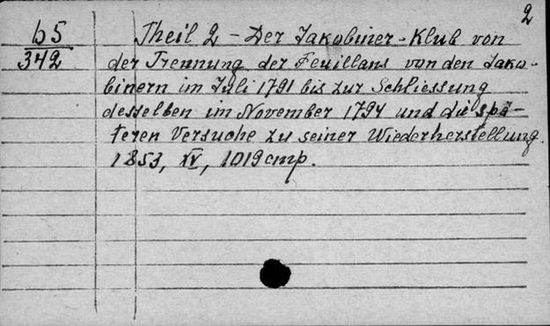 2
65
342
Theil 2 - Der Jakobiner-Klub von
der Trennung der Feuillans von den Jako-
binern im Juli 1791 bis zur Schliessung
desselben im November 1794 und die spä-
teren Versuche zu seiner Wiederherstellung.
1853, XV, 1019 стр.